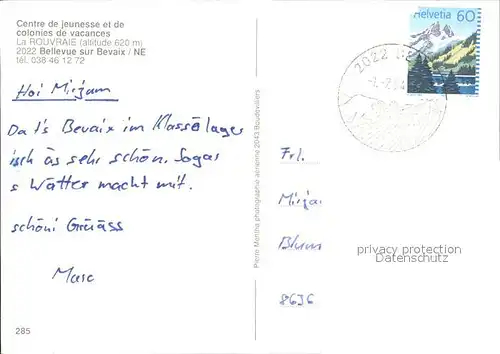 Centre de jeunesse et de
colonies de vacances
La ROUVRAIE (altitude 620 m)
2022 Bellevue sur Bevaix / NE
tél. 038 46 12 72
Hoi Mirjam
Da i's Bevaix im Klassälager
isch äs sehr schön. Sogar
s Wätter macht mit.
schöni Grüäss
Marc
285
Pierre Menthe photographie aérienne 2043 Boudevilliers
Helvetia 60
2022
Frl.
Mirja
Blum
8636
privacy protection
Datenschutz